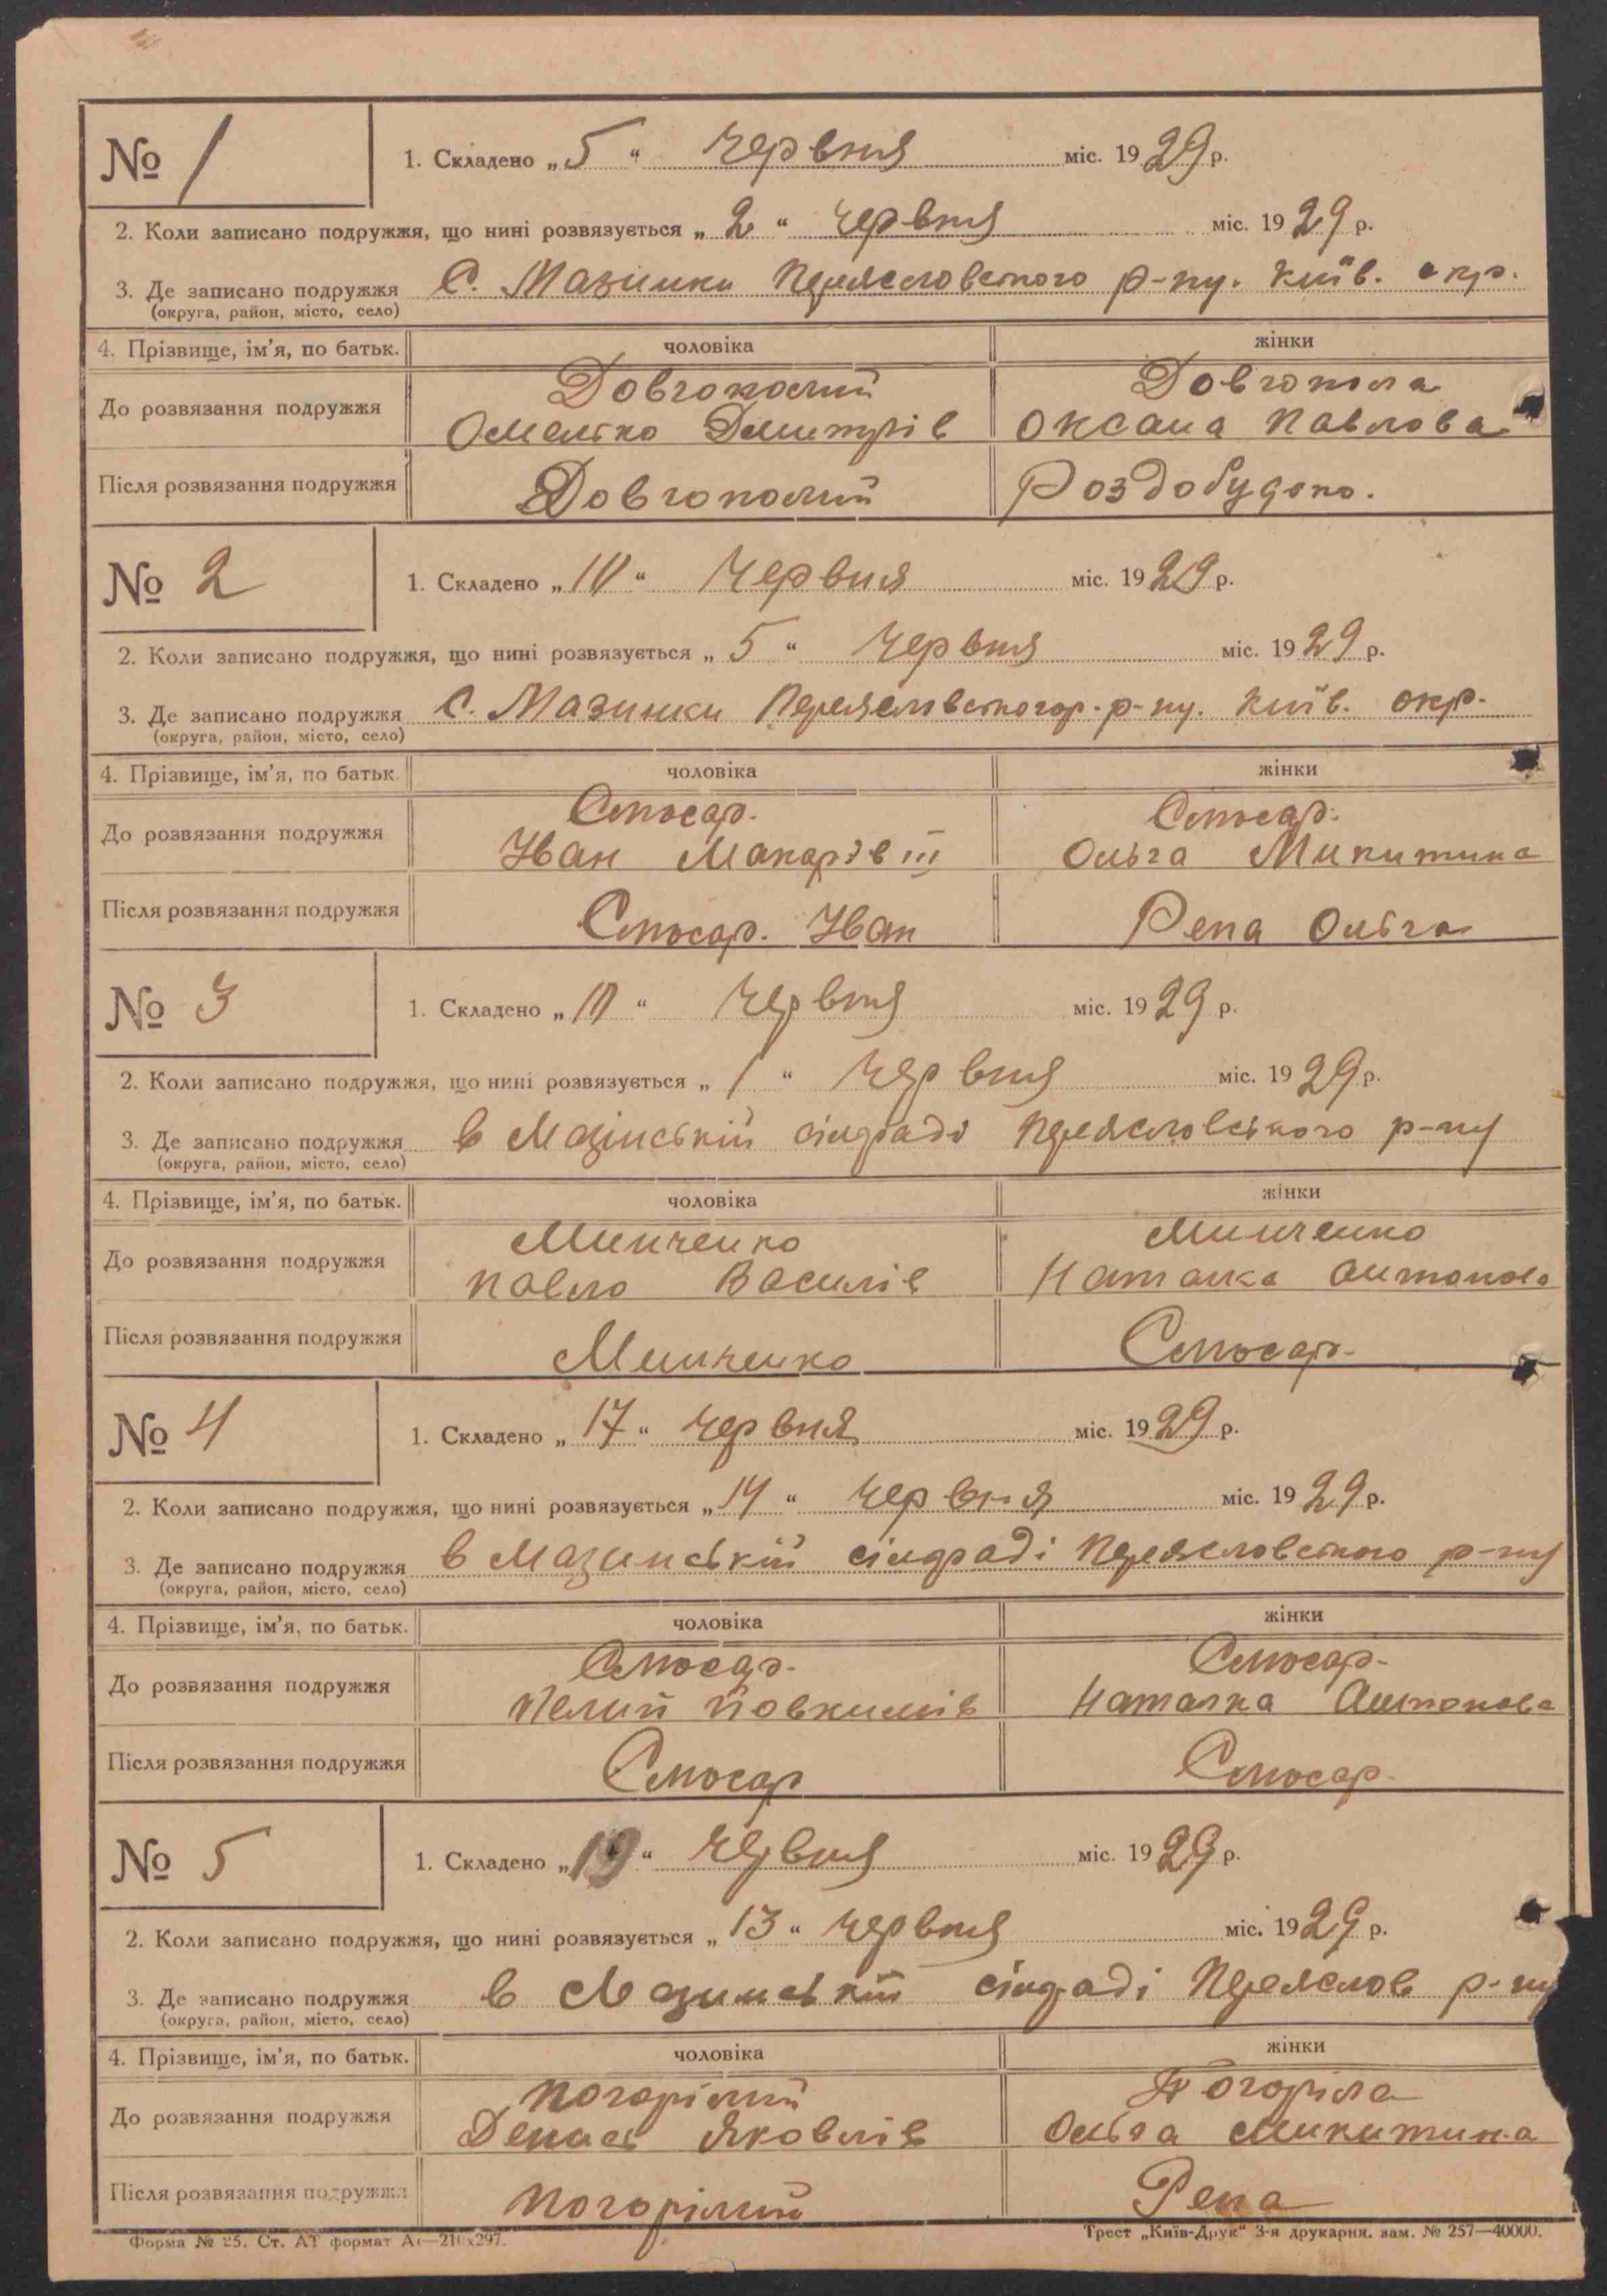 № 1
1. Складено „5“ Червня міс. 1929 р.
2. Коли записано подружжя, що нині розвязується „2“ Червня міс. 1929 р.
3. Де записано подружжя С. Мазинки Переясловського р-ну. Київ. окр.
(округа, район, місто, село)
4. Прізвище, ім’я, по батьк. чоловіка жінки
Довгополий Довгопола
До розвязання подружжя Омелько Дмитрів Оксана Павлова
Після розвязання подружжя Довгополий Роздобудько.
№ 2
1. Складено „10“ Червня міс. 1929 р.
2. Коли записано подружжя, що нині розвязується „5“ Червня міс. 1929 р.
3. Де записано подружжя С. Мазинки р-ну. Київ. окр.
(округа, район, місто, село)
4. Прізвище, ім’я, по батьк. чоловіка жінки
Слюсар. Слюсар.
До розвязання подружжя Іван Макарів Ольга Микитина
Після розвязання подружжя Слюсар. Іван Репа Ольга
№ 3
1. Складено „10“ Червня міс. 1929 р.
2. Коли записано подружжя, що нині розвязується „1“ Червня міс. 1929 р.
3. Де записано подружжя в Мазінській сільраді Переясловського р-ну
(округа, район, місто, село)
4. Прізвище, ім’я, по батьк. чоловіка жінки
Минченко Минченко
До розвязання подружжя Павло Василів Наталка Антонова
Після розвязання подружжя Минченко Слюсар.
№ 4
1. Складено „17“ Червня міс. 1929 р.
2. Коли записано подружжя, що нині розвязується „14“ Червня міс. 1929 р.
3. Де записано подружжя в Мазинській сільраді Переясловського р-ну
(округа, район, місто, село)
4. Прізвище, ім’я, по батьк. чоловіка жінки
Слюсар. Слюсар.
До розвязання подружжя Йовхимів Наталка Антонова
Після розвязання подружжя Слюсар Слюсар.
№ 5
1. Складено „19“ Червня міс. 1929 р.
2. Коли записано подружжя, що нині розвязується „13“ Червня міс. 1929 р.
3. Де записано подружжя в Мазинській сільраді Переяслов р-ну
(округа, район, місто, село)
4. Прізвище, ім’я, по батьк. чоловіка жінки
Погорілий Погоріла
До розвязання подружжя Денис Яковлів Ольга Микитина
Після розвязання подружжя Погорілий Репа
Форма № 25. Ст. АТ формат А4—210х297. Трест „Київ-Друк“ 3-я друкарня. зам. № 257—40000.